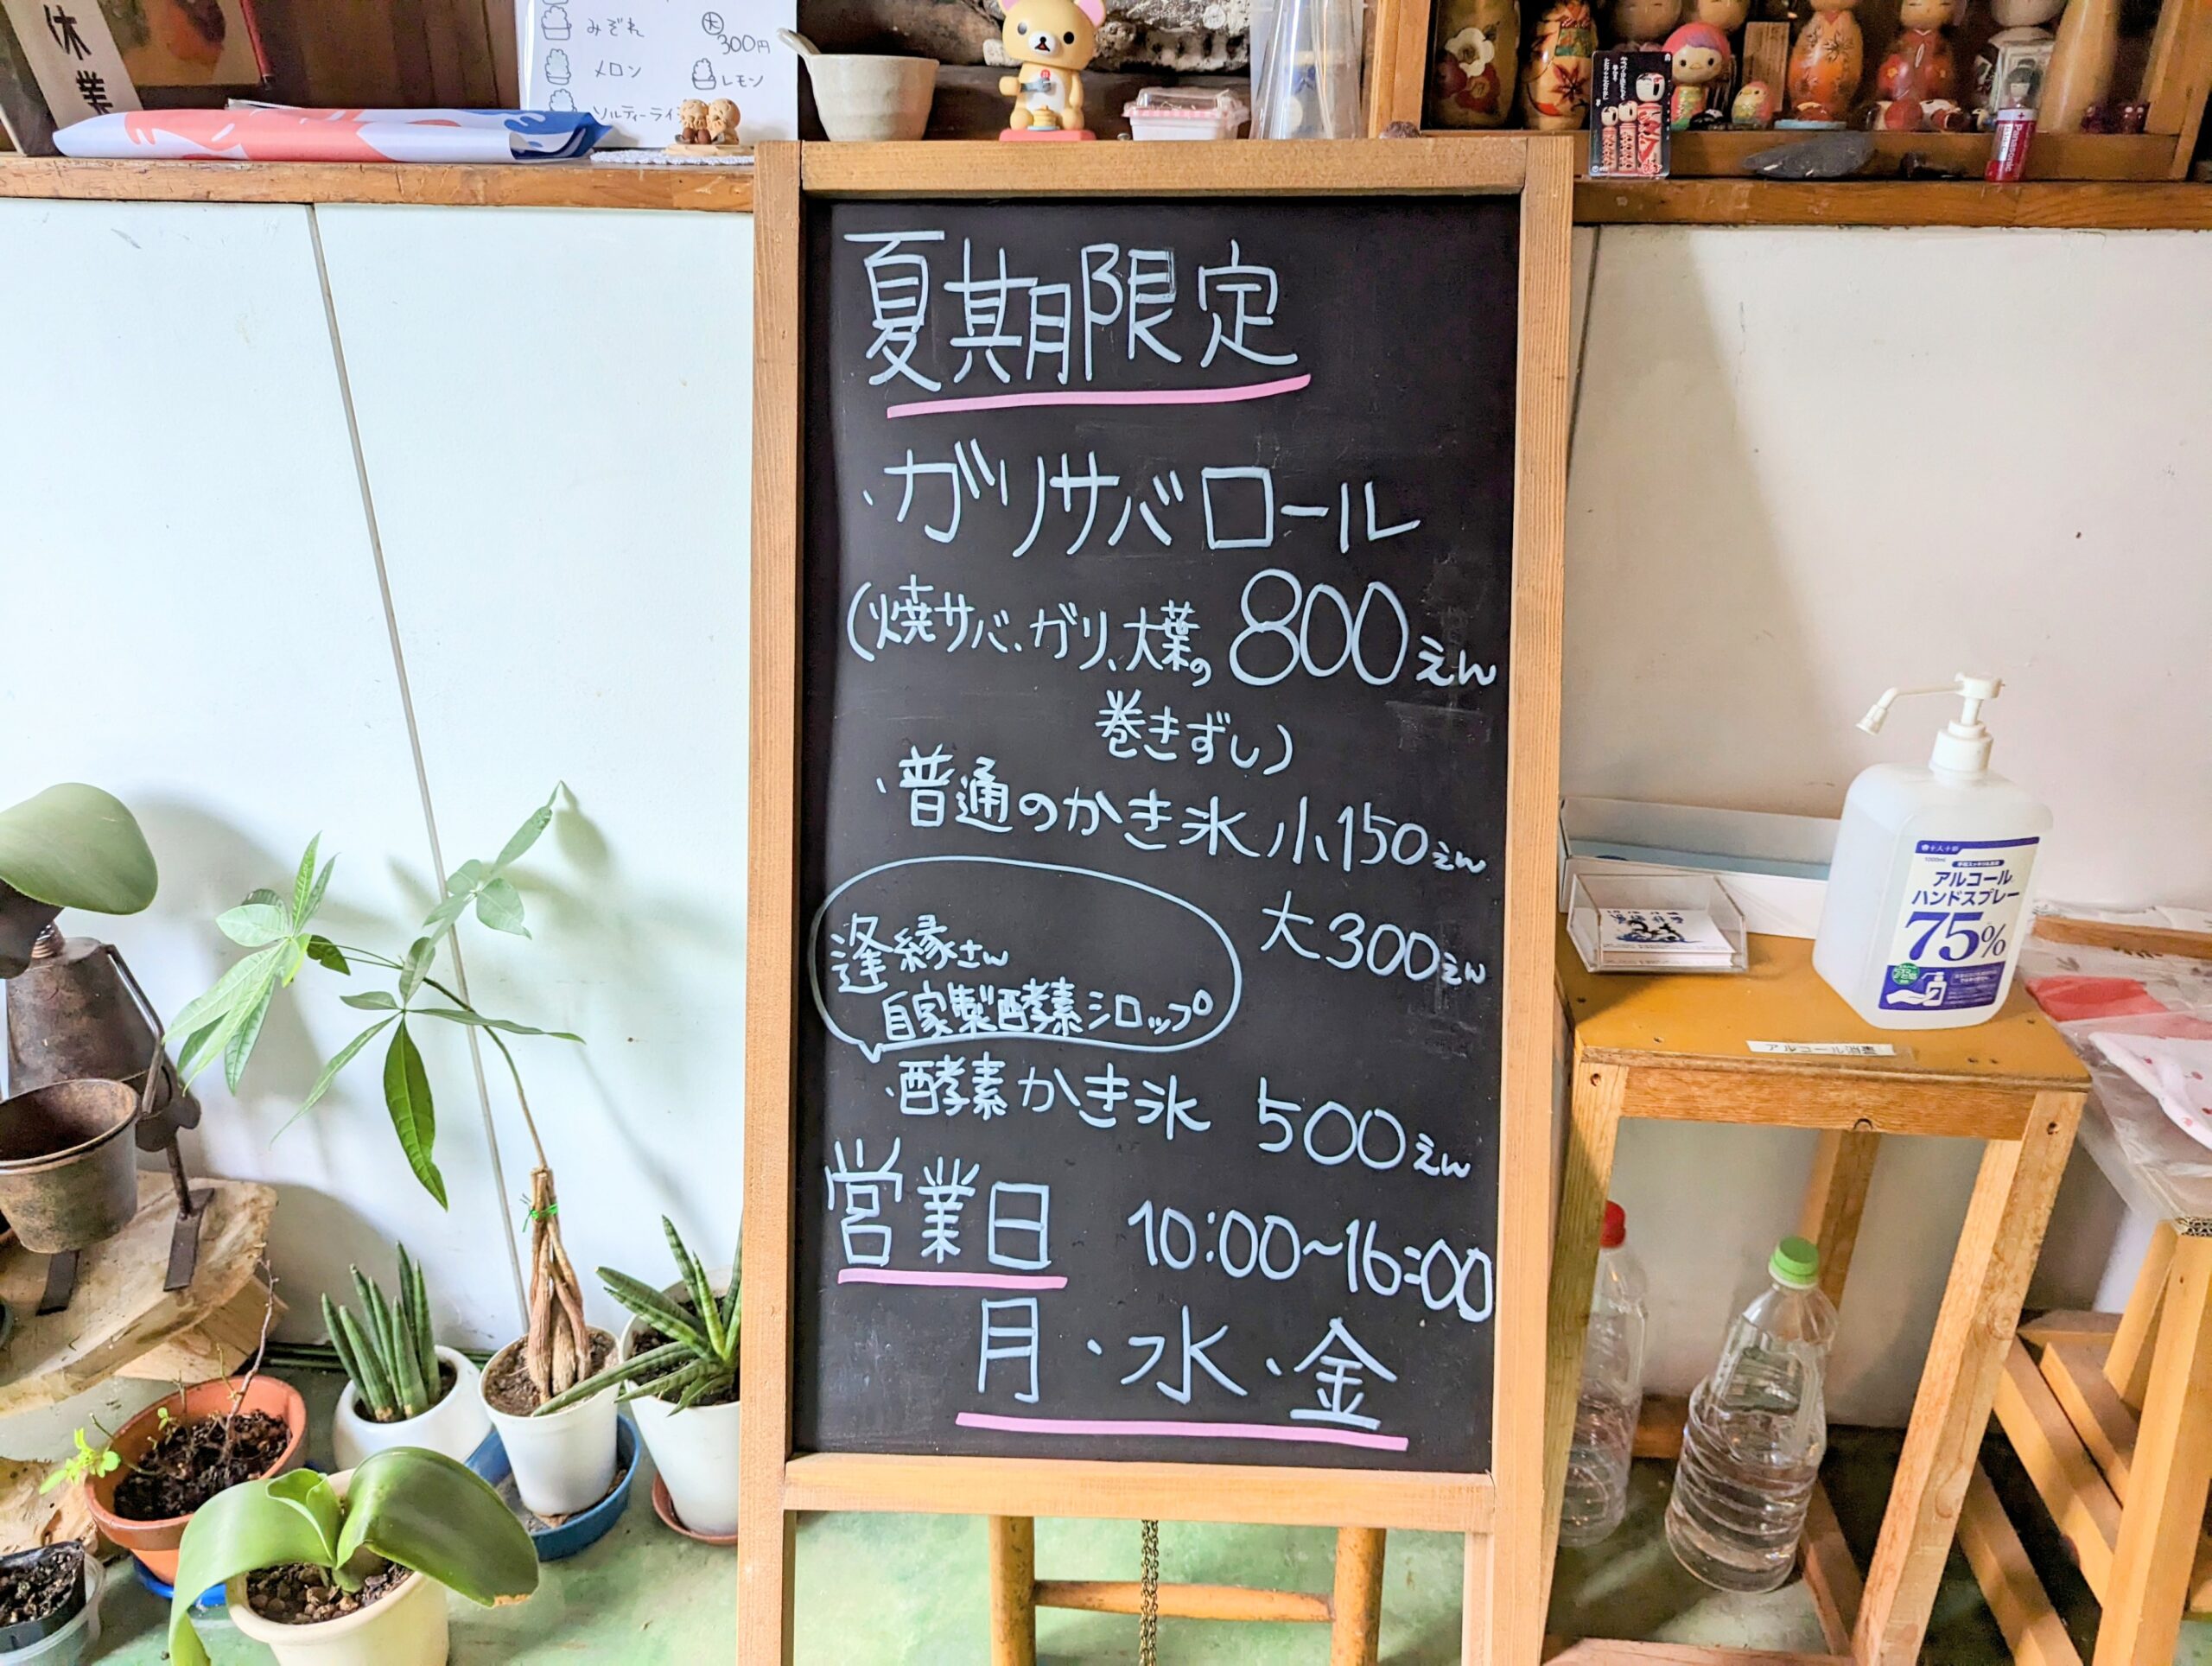 休業
みぞれ
大
300円
メロン
レモン
ソルティーライ
夏期限定
・ガリサバロール
(焼サバ、ガリ、大葉の 800えん
巻きずし)
・普通のかき氷 小150えん
大300えん
逢縁さん
自家製酵素シロップ
・酵素かき氷 500えん
営業日 10:00～16:00
月・水・金
1000ml
アルコール
ハンドスプレー
75%